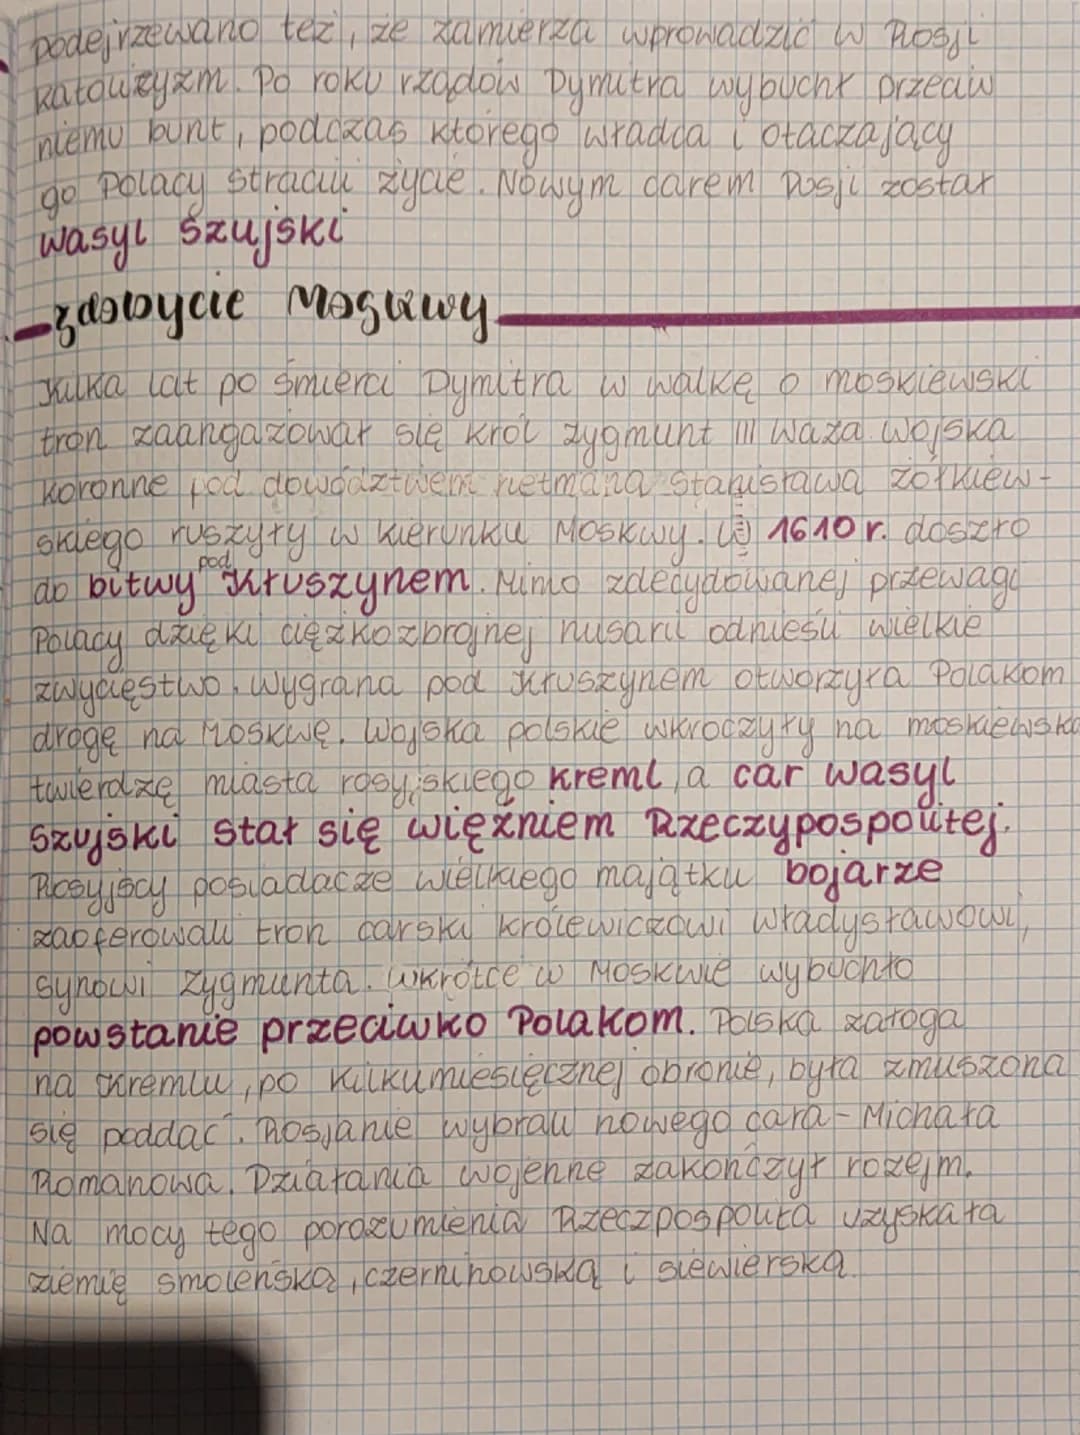 podejrzewano też, że zamierza wprowadzić w Rosji
katolicyzm. Po roku rządów Dymitra wybuchł przeciw
niemu bunt, podczas którego władca i otaczający
go Polacy stracili życie. Nowym carem Rosji został
Wasyl Szujski
Zdobycie Moskwy
Kilka lat po śmierci Dymitra w walkę o moskiewski
tron zaangażował się król Zygmunt III Waza. Wojska
koronne pod dowództwem hetmana Stanisława Żółkiew-
skiego ruszyły w kierunku Moskwy. W 1610 r. doszło
do bitwy pod Kłuszynem. Mimo zdecydowanej przewagi
Polacy dzięki ciężkozbrojnej husarii odnieśli wielkie
zwycięstwo. Wygrana pod Kłuszynem otworzyła Polakom
drogę na Moskwę. Wojska polskie wkroczyły na moskiewską
twierdzę miasta rosyjskiego Kreml, a car Wasyl
Szujski stał się więźniem Rzeczypospolitej.
Rosyjscy posiadacze wielkiego majątku bojarze
zaoferowali tron carski królewiczowi Władysławowi,
synowi Zygmunta. Wkrótce w Moskwie wybuchło
powstanie przeciwko Polakom. Polska załoga
na Kremlu, po kilkumiesięcznej obronie, była zmuszona
się poddać. Rosjanie wybrali nowego cara - Michała
Romanowa. Działania wojenne zakończył rozejm.
Na mocy tego porozumienia Rzeczpospolita uzyskała
ziemię smoleńską, czernihowską i siewierską.